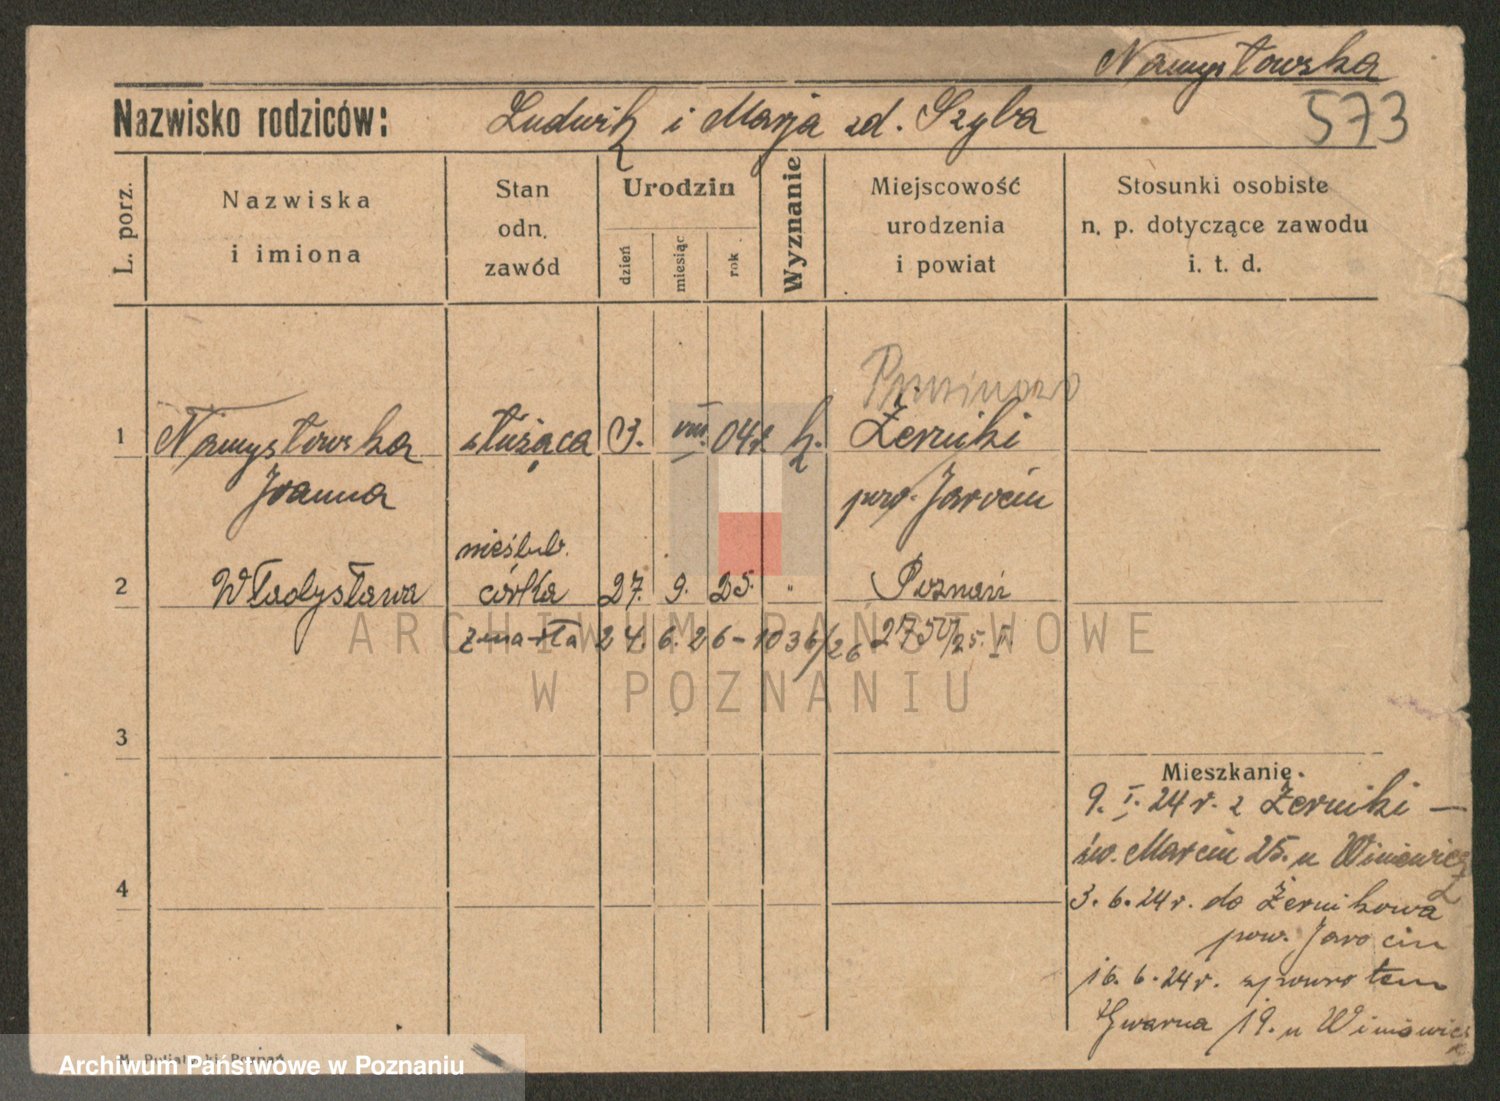 Namysłowska
573
Nazwisko rodziców: Ludwik i Marja zd. Szyba
L. porz.
Nazwiska
i imiona
Stan
odn.
zawód
Urodzin
dzień
miesiąc
rok
Wyznanie
Miejscowość
urodzenia
i powiat
Stosunki osobiste
n. p. dotyczące zawodu
i. t. d.
1 Namysłowska służąca 3. VIII. 04r. k. Żerniki
Joanna pow. Jarocin
nieślub.
2 Władysława córka 27. 9. 25. " Poznań
zmarła 24. 6. 26 - 1036/26 2750/25. I.
3
4
Mieszkanie.
9. I. 24 r. z Żerniki —
św. Marcin 25. u Winiewicz
3. 6. 24 r. do Żernikowa
pow. Jarocin
16. 6. 24 r. zpowrotem
Gwarna 19. u Winiewicz
ARCHIWUM PAŃSTWOWE
W POZNANIU
Archiwum Państwowe w Poznaniu